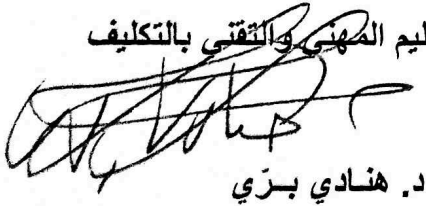 ليم المهني والتقني بالتكليف
د. هنادي بـرّي